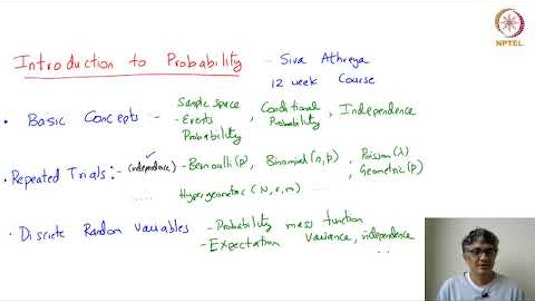 NPTEL
Introduction to Probability - Siva Athreya
12 week Course
• Basic Concepts - Sample space - Events Probability, Conditional Probability, Independence
• Repeated Trials:- (independence) - Bernoulli(p), Binomial(n,p), Poisson(λ), Geometric(p)
Hypergeometric(N,r,m) ....
• Discrete Random Variables - Probability mass function
- Expectation Variance, independence
...